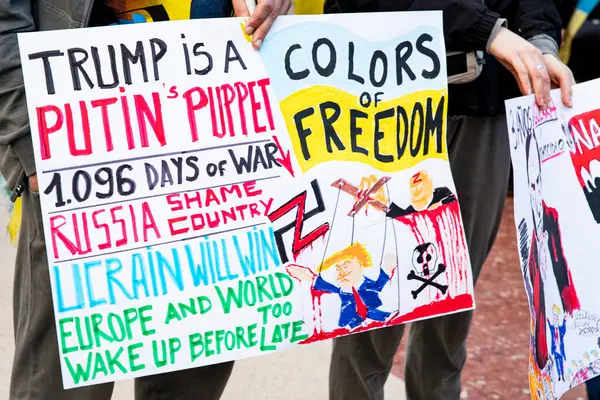 TRUMP IS A
PUTIN'S PUPPET
1.096 DAYS OF WAR
RUSSIA SHAME COUNTRY
UCRAIN WILL WIN
EUROPE AND WORLD
WAKE UP BEFORE TOO LATE
COLORS
OF
FREEDOM